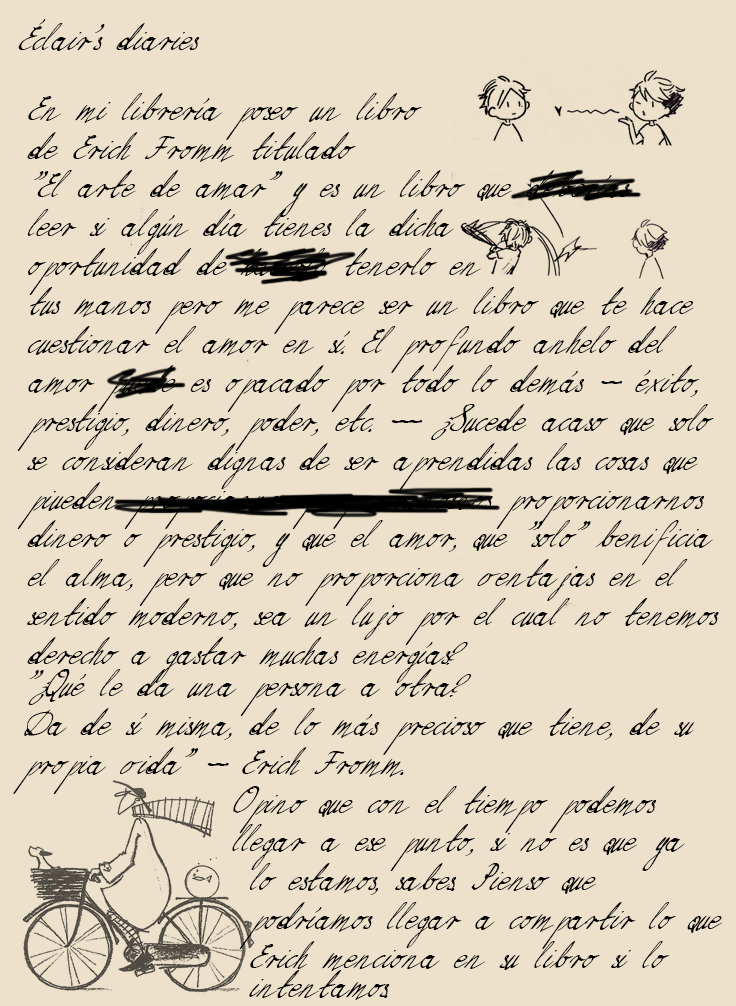 Éclair's diaries
En mi librería poseo un libro
de Erich Fromm titulado
"El arte de amar" y es un libro que
leer si algún día tienes la dicha
oportunidad de tenerlo en
tus manos pero me parece ser un libro que te hace
cuestionar el amor en sí. El profundo anhelo del
amor es opacado por todo lo demás — éxito,
prestigio, dinero, poder, etc. — ¿Sucede acaso que solo
se consideran dignas de ser aprendidas las cosas que
pueden proporcionarnos
dinero o prestigio, y que el amor, que "solo" benificia
el alma, pero que no proporciona ventajas en el
sentido moderno, sea un lujo por el cual no tenemos
derecho a gastar muchas energías?
"¿Qué le da una persona a otra?
Da de sí misma, de lo más precioso que tiene, de su
propia vida" — Erich Fromm.
Opino que con el tiempo podemos
llegar a ese punto, si no es que ya
lo estamos, sabes Pienso que
podríamos llegar a compartir lo que
Erich menciona en su libro si lo
intentamos